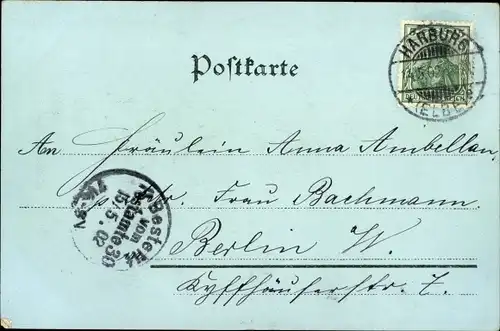 Postkarte
HARBURG
(ELBE)
An Fräulein Anna Ambellan,
Frau Bachmann
Berlin W.
Kyffhäuserstr. 7.
Bestellt
vom
Postamte 30
15. 5. 02